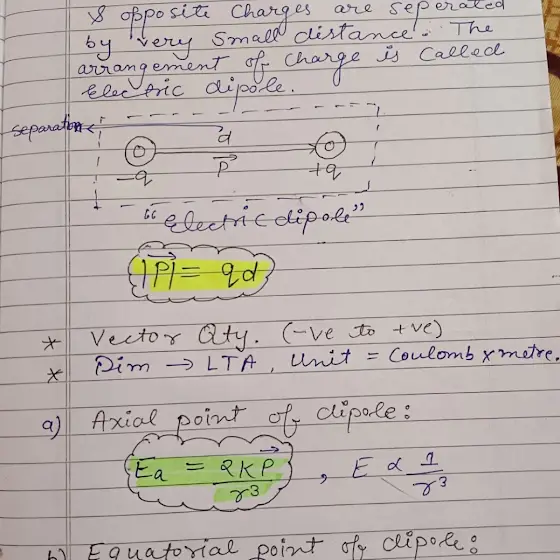 & opposite Charges are seperated
by very small distance. The
arrangement of charge is called
Electric dipole.
separation
d
P
-q
+q
"Electric dipole"
|P| = qd
* Vector Qty. (-ve to +ve)
* Dim → LTA, Unit = Coulomb x metre.
a) Axial point of dipole:
Ea = 2KP/r³ , E ∝ 1/r³
b) Equatorial point of dipole: